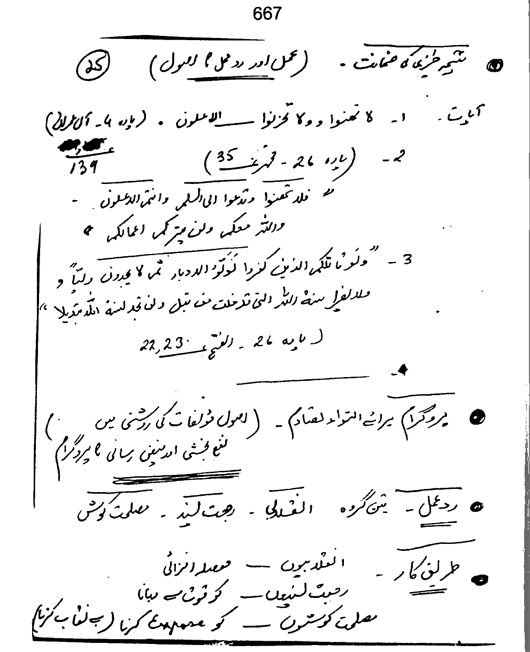 667
نتیجہ خیزی کی ضمانت - (عمل اور ردعمل کا اصول) 25
آیات - 1- لا تھنوا ولا تحزنوا — الاعلون - (پارہ 4 - آل عمران
139
2- (پارہ 26 - محمد 35)
" فلا تھنوا وتدعوا الی السلم وانتم الاعلون -
واللہ معکم ولن یترکم اعمالکم "
3- "ولو قاتلکم الذین کفروا لولوا الادبار ثم لا یجدون ولیا و
ولا نصیرا سنۃ اللہ التی قد خلت من قبل ولن تجد لسنۃ اللہ تبدیلا"
(پارہ 26 - الفتح 22,23
4-
پروگرام برائے التواء تصادم - (اصول مؤلفات کی روشنی میں)
نفع بخشی اور فیض رسانی کا پروگرام
ردعمل - تین گروہ انقلابی - رجعت پسند - مصلحت کوش
طریق کار - انقلابیوں — حوصلہ افزائی
رجعت پسندوں — کو قوت سے دبانا
مصلحت کوشوں — کو Expose کرنا (بے نقاب کرنا)